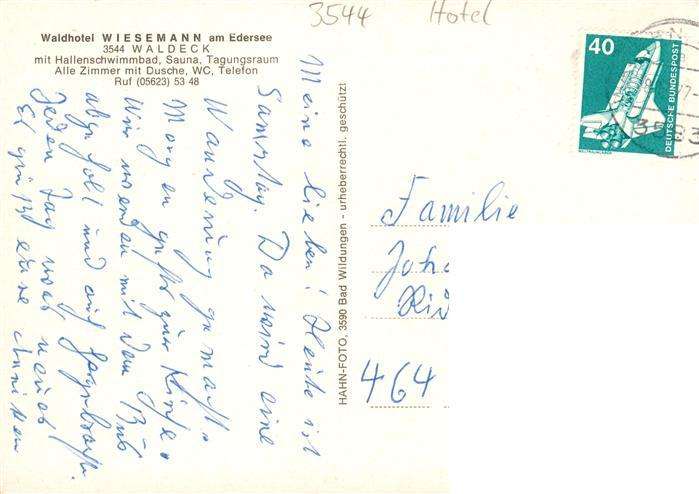 3544 Hotel
Waldhotel WIESEMANN am Edersee
3544 WALDECK
mit Hallenschwimmbad, Sauna, Tagungsraum
Alle Zimmer mit Dusche, WC, Telefon
Ruf (05623) 53 48
Meine lieben! Heute ist
Samstag. Da wird eine
Wanderung gemacht.
Morgen geht's zur Kirche.
Wir werden mit dem Bus
abgeholt und auch
Jeden Tag was neues
Es grüßt eure
HAHN-FOTO, 3590 Bad Wildungen - urheberrechtl. geschützt
40
DEUTSCHE BUNDESPOST
WELTRAUMLABOR
Familie
Joh
464